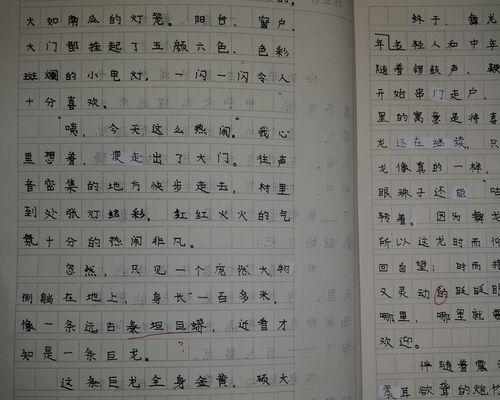 大如南瓜的灯笼。阳台、窗户、
大门都挂起了五颜六色、色彩
斑斓的小电灯，一闪一闪令人
十分喜欢。
“咦，今天这么热闹。”我心
里想着，便走出了大门。往声
音密集的地方快步走去，村里
到处张灯结彩，红红火火的气
氛十分的热闹非凡。
忽然，只见一个庞然大物
侧躺在地上，身长一百多米，
像一条远古泰坦巨蟒，近看才
知是一条巨龙。
这条巨龙全身金黄，硕大
终于，舞龙
年轻人和中年
随着锣鼓声、鞭
开始串门走户，
里的寓意是将喜
龙还在继续，只
龙像真的一样，
眼珠子还能“咕
转着。因为舞龙
所以这龙时而俯
回自望；时而持
又灵动的眨眨眼
哪里，哪里就
欢迎。
伴随着震
震耳欲聋的炮竹